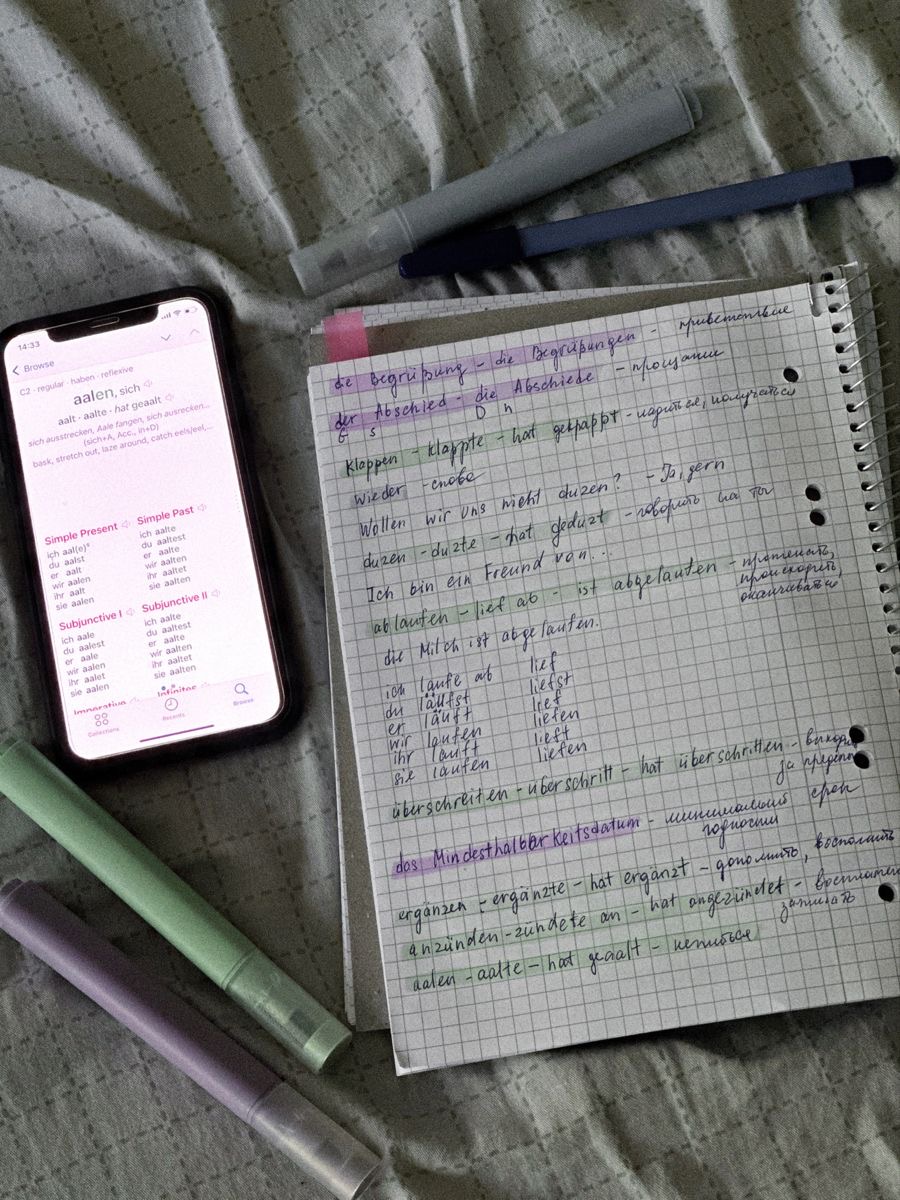 14:33
Browse
C2 · regular · haben · reflexive
aalen, sich
aalt · aalte · hat geaalt
sich ausstrecken, Aale fangen, sich ausrecken...
(sich+A, Acc., in+D)
bask, stretch out, laze around, catch eels/eel,...
Simple Present
ich aal(e)⁵
du aalst
er aalt
wir aalen
ihr aalt
sie aalen
Simple Past
ich aalte
du aaltest
er aalte
wir aalten
ihr aaltet
sie aalten
Subjunctive I
ich aale
du aalest
er aale
wir aalen
ihr aalet
sie aalen
Subjunctive II
ich aalte
du aaltest
er aalte
wir aalten
ihr aaltet
sie aalten
Imperative
Infinites
Collections
Recents
Browse
die Begrüßung - die Begrüßungen - приветствие
der Abschied - die Abschiede - прощание
G s D n
klappen - klappte - hat geklappt - ладиться, получаться
wieder - снова
Wollen wir uns nicht duzen? - Ja, gern
duzen - duzte - hat geduzt - говорить на ты
Ich bin ein Freund von...
ablaufen - lief ab - ist abgelaufen - протекать,
происходить,
оканчиваться
die Milch ist abgelaufen.
ich laufe ab lief
du läufst liefst
er läuft lief
wir laufen liefen
ihr lauft lieft
sie laufen liefen
überschreiten - überschritt - hat überschritten -
за пределы
das Mindesthaltbarkeitsdatum - минимальный срок
годности
ergänzen - ergänzte - hat ergänzt - дополнить, восполнить
anzünden - zündete an - hat angezündet -
зажигать
aalen - aalte - hat geaalt - нежиться